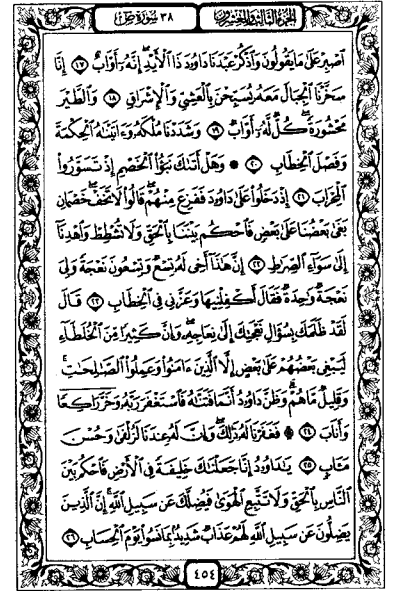 الجزء الثالث والعشرون
٣٨ سورة ص
ٱصۡبِرۡ عَلَىٰ مَا يَقُولُونَ وَٱذۡكُرۡ عَبۡدَنَا دَاوُۥدَ ذَا ٱلۡأَيۡدِۖ إِنَّهُۥٓ أَوَّابٌ ١٧ إِنَّا
سَخَّرۡنَا ٱلۡجِبَالَ مَعَهُۥ يُسَبِّحۡنَ بِٱلۡعَشِيِّ وَٱلۡإِشۡرَاقِ ١٨ وَٱلطَّيۡرَ
مَحۡشُورَةٗۖ كُلّٞ لَّهُۥٓ أَوَّابٞ ١٩ وَشَدَدۡنَا مُلۡكَهُۥ وَءَاتَيۡنَٰهُ ٱلۡحِكۡمَةَ
وَفَصۡلَ ٱلۡخِطَابِ ٢٠ ۞ وَهَلۡ أَتَىٰكَ نَبَؤُاْ ٱلۡخَصۡمِ إِذۡ تَسَوَّرُواْ
ٱلۡمِحۡرَابَ ٢١ إِذۡ دَخَلُواْ عَلَىٰ دَاوُۥدَ فَفَزِعَ مِنۡهُمۡۖ قَالُواْ لَا تَخَفۡۖ خَصۡمَانِ
بَغَىٰ بَعۡضُنَا عَلَىٰ بَعۡضٖ فَٱحۡكُم بَيۡنَنَا بِٱلۡحَقِّ وَلَا تُشۡطِطۡ وَٱهۡدِنَآ
إِلَىٰ سَوَآءِ ٱلصِّرَٰطِ ٢٢ إِنَّ هَٰذَآ أَخِي لَهُۥ تِسۡعٞ وَتِسۡعُونَ نَعۡجَةٗ وَلِيَ
نَعۡجَةٞ وَٰحِدَةٞ فَقَالَ أَكۡفِلۡنِيهَا وَعَزَّنِي فِي ٱلۡخِطَابِ ٢٣ قَالَ
لَقَدۡ ظَلَمَكَ بِسُؤَالِ نَعۡجَتِكَ إِلَىٰ نِعَاجِهِۦۖ وَإِنَّ كَثِيرٗا مِّنَ ٱلۡخُلَطَآءِ
لَيَبۡغِي بَعۡضُهُمۡ عَلَىٰ بَعۡضٍ إِلَّا ٱلَّذِينَ ءَامَنُواْ وَعَمِلُواْ ٱلصَّٰلِحَٰتِ
وَقَلِيلٞ مَّا هُمۡۗ وَظَنَّ دَاوُۥدُ أَنَّمَا فَتَنَّٰهُ فَٱسۡتَغۡفَرَ رَبَّهُۥ وَخَرَّۤ رَاكِعٗاۤ
وَأَنَابَ ٢٤ ۞ فَغَفَرۡنَا لَهُۥ ذَٰلِكَۖ وَإِنَّ لَهُۥ عِندَنَا لَزُلۡفَىٰ وَحُسۡنَ
مَـَٔابٖ ٢٥ يَٰدَاوُۥدُ إِنَّا جَعَلۡنَٰكَ خَلِيفَةٗ فِي ٱلۡأَرۡضِ فَٱحۡكُم بَيۡنَ
ٱلنَّاسِ بِٱلۡحَقِّ وَلَا تَتَّبِعِ ٱلۡهَوَىٰ فَيُضِلَّكَ عَن سَبِيلِ ٱللَّهِۚ إِنَّ ٱلَّذِينَ
يَضِلُّونَ عَن سَبِيلِ ٱللَّهِ لَهُمۡ عَذَابٞ شَدِيدُۢ بِمَا نَسُواْ يَوۡمَ ٱلۡحِسَابِ ٢٦
٤٥٤